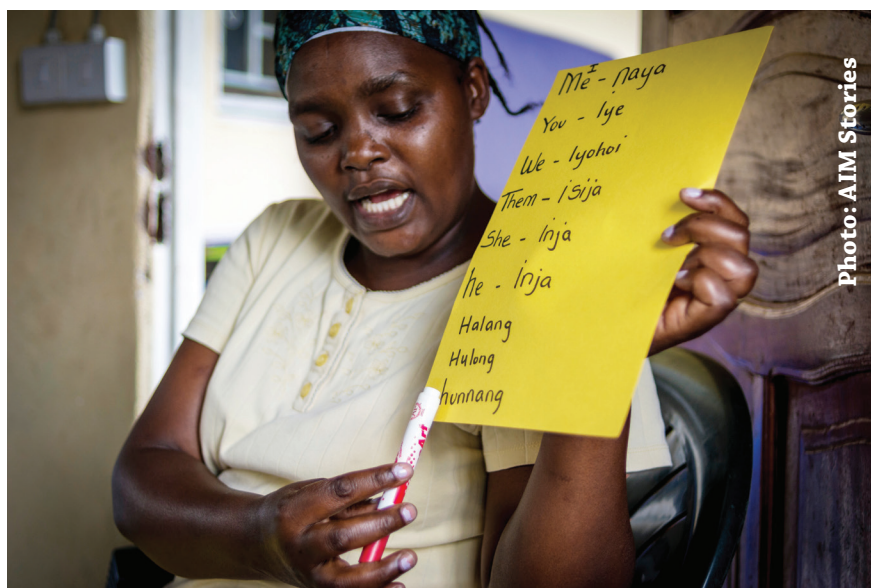 Me I - naya
You - Iye
We - Iyohoi
Them - isija
She - Inja
he - Inja
Halang
Hulong
hunnang
Art
Photo: AIM Stories